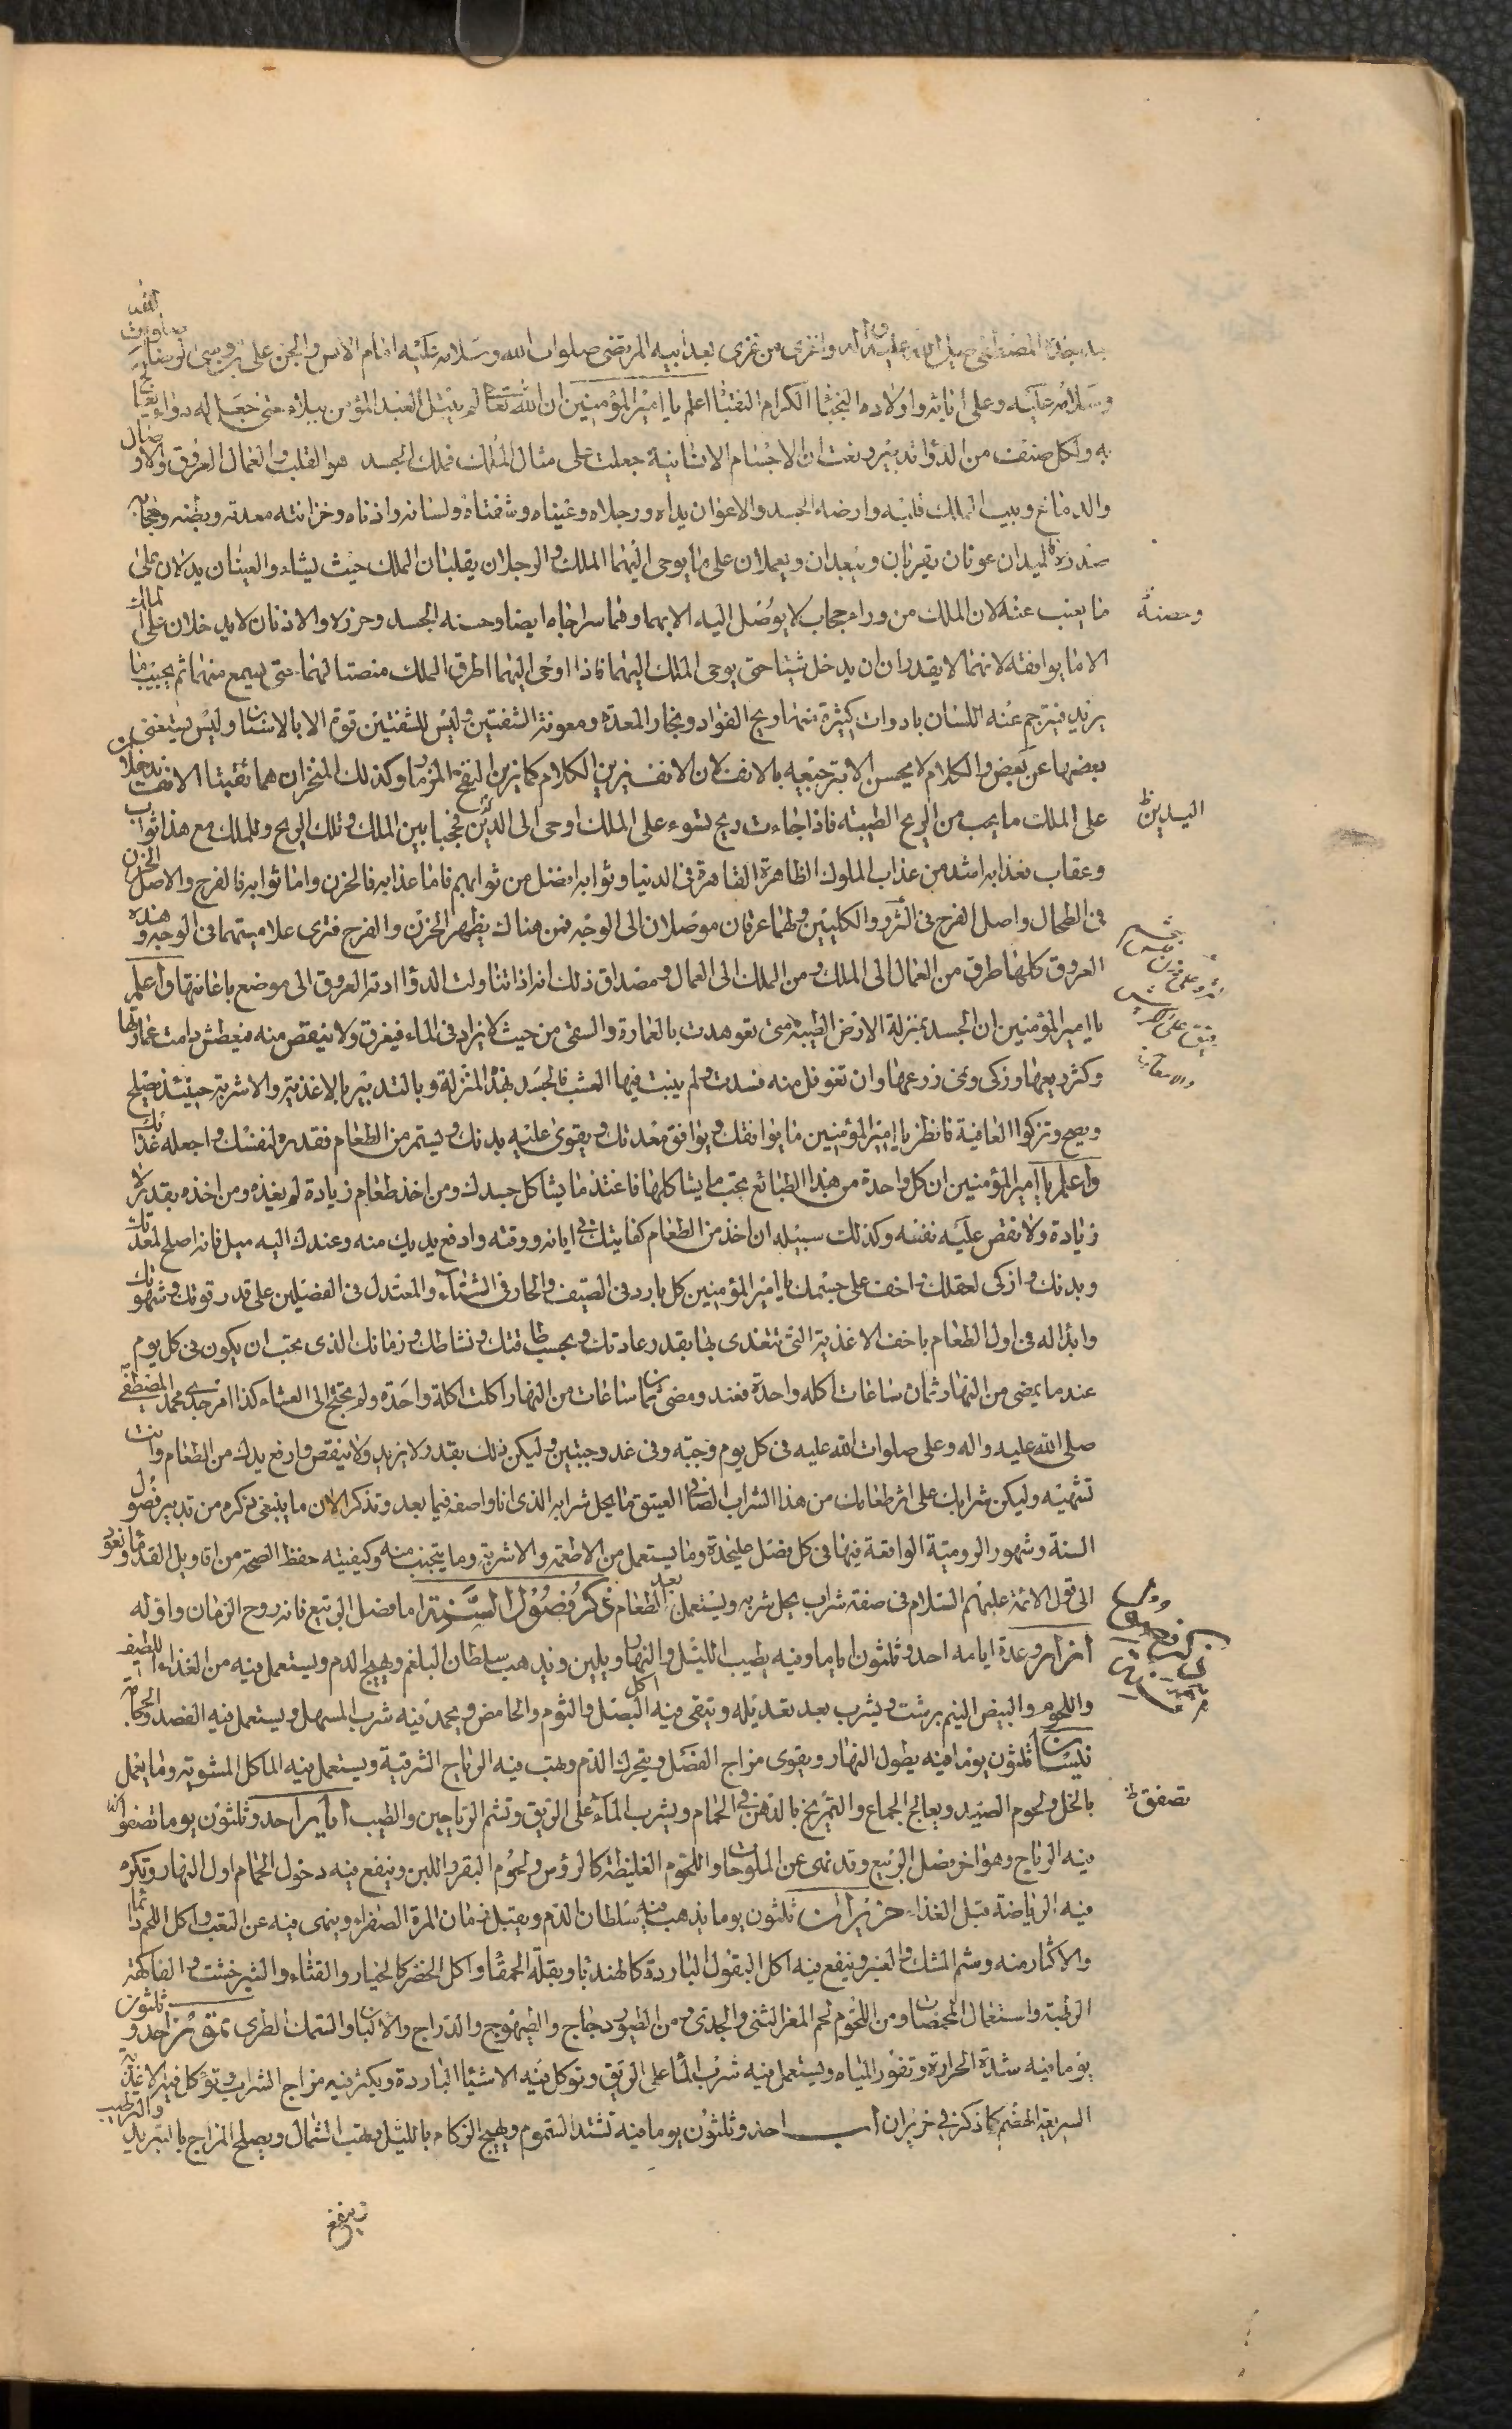 وسلامه عليه وعلى ابائه واولاده النجباء الكرام النقباء اعلم يا امير المؤمنين ان الله تعالى لم يبتل العبد المؤمن ببلاء حتى جعل له دواء يعالج
به ولكل صنف من الدواء تدبير ونعت ان الاجسام الانسانية جعلت على مثال الملك فملك الجسد هو القلب والعمال العروق والاوصال
والدماغ وبيت الملك قلبه وارضه الجسد والاعوان يداه ورجلاه وعيناه وشفتاه ولسانه واذناه وخزانته معدته وبطنه وحجابه
صدره فاليدان عونان يقربان ويبعدان ويعملان على ما يوحى اليهما الملك والرجلان ينقلان الملك حيث يشاء والعينان يدلان على
ما يغيب عنه لان الملك من وراء حجاب لا يوصل اليه الا بهما وهما سراجاه ايضا وحسنه الجسد وحرزه والاذنان لا يدخلان على الملك
وحصنه
الا ما يوافقه لانهما لا يقدران ان يدخلا شيئا حتى يوحى الملك اليهما فاذا اوحى اليهما اطرق الملك منصتا لهما حتى يسمع منهما ثم يجيب بما
يريد فيترجم عنه اللسان بادوات كثيرة منها ريح الفؤاد وبخار المعدة ومعونة الشفتين وليس للشفتين قوة الا بالاسنان وليس يستغنى
بعضها عن بعض والكلام لا يحسن الا بترجيعه بالانف لان الانف يزين الكلام كما يزين النفخ المزمار وكذلك المنخران هما ثقبتا الانف يدخلان
على الملك ما يحب من الريح الطيبة فاذا جاءت ريح تسوء على الملك اوحى الى اليدين فحجبا بين الملك وتلك الريح وللملك مع هذا ثواب
اليدين ظ
وعقاب فعذابه اشد من عذاب الملوك الظاهرة القاهرة فى الدنيا وثوابه افضل من ثوابهم فاما عذابه فالحزن واما ثوابه فالفرح والاصل الحزن
فى الطحال واصل الفرح فى الثرب والكليتين ولهما عرقان موصلان الى الوجه فمن هناك يظهر الحزن والفرح فترى علامتهما فى الوجه وهذه
العروق كلها طرق من العمال الى الملك ومن الملك الى العمال ومصداق ذلك انه اذا تناولت الدواء ادته العروق الى موضع باعانتها واعلم
يا امير المؤمنين ان الجسد بمنزلة الارض الطيبة متى تعوهدت بالعمارة والسقى من حيث لا يزاد فى الماء فيغرق ولا ينقص منه فيعطش دامت عمارتها
وكثر ريعها وزكى ونمى زرعها وان تغوفل عنه فسدت ولم ينبت فيها العشب فالجسد بهذه المنزلة وبالتدبير بالاغذية والاشربة حينئذ يصلح
ويصح وتزكوا العافية فانظر يا امير المؤمنين ما يوافقك ويوافق معدتك ويقوى عليه بدنك ويستمر من الطعام فقدره لنفسك واجعله غذائك
واعلم يا امير المؤمنين ان كل واحدة من هذه الطبائع تحب ما يشاكلها فاغتذ ما يشاكل جسدك ومن اخذ طعام زيادة لم يغذه ومن اخذه بقدر لا
زيادة ولا نقص عليه نفعه وكذلك سبيله ان اخذ من الطعام كفايتك فى ابانه ووقته وارفع يديك منه وعندك اليه ميل فانه اصلح لمعدتك
وبدنك وازكى لعقلك واخف على جسمك يا امير المؤمنين كل بارد فى الصيف والحار فى الشتاء والمعتدل فى الفصلين على قدر قوتك وشهوتك
وابدا له فى اول الطعام باخف الاغذية التى تتغذى بها بقدر عادتك وبحسب طاقتك ونشاطك وزمانك الذى يجب ان يكون فى كل يوم
عند ما يمضى من النهار ثمان ساعات اكله واحدة فعند ومضى ثمان ساعات من النهار اكلت اكلة واحدة ولم تحتج الى العشاء كذا امر جدى محمد المصطفى
صلى الله عليه واله وعلى صلوات الله عليه فى كل يوم وجبة وفى غد وجبتين وليكن ذلك بقدر لا يزيد ولا ينقص وارفع يدك من الطعام وانت
تشتهيه وليكن شرابك على اثر طعامك من هذا الشراب الصافى العتيق مما يحل شرابه الذى انا واصفه فيما بعد ونذكر الان ما ينبغى ذكره من تدبير فصول
السنة وشهور الرومية الواقعة فيها فى كل فصل على حدة وما يستعمل من الاطعمة والاشربة وما يتجنب منه وكيفية حفظ الصحة من اقاويل القدماء ونعود
الى قول الائمة عليهم السلام فى صفة شراب يحل شربه ويستعمل بعد الطعام ذكر فصول السنة اما فصل الربيع فانه روح الزمان واوله
اذار وعدة ايامه احد وثلثون اياما وفيه يطيب الليل والنهار ويلين ويذهب سلطان البلغم ويهيج الدم ويستعمل فيه من الغذاء اللطيف
واللحوم والبيض النيمبرشت ويشرب بعد تعديله ويتقى فيه اكل البصل والثوم والحامض ويحمد فيه شرب المسهل ويستعمل فيه الفصد والحجامة
نيسان ثلثون يوما فيه يطول النهار ويقوى مزاج الفصل ويتحرك الدم وهب فيه الرياح الشرقية ويستعمل فيه الماكل المشوية وما يعمل
بالخل ولحوم الصيد ويعالج الجماع والتمريخ بالدهن فى الحمام ويشرب الماء على الريق وتشم الرياحين والطيب ايار احد وثلثون يوما تصفوا
تصفق ظ
فيه الرياح وهو اخر فصل الربيع وقد نهى عن الملوحات واللحوم الغليظة كالرؤس ولحوم البقر واللبن وينفع فيه دخول الحمام اول النهار وتكره
فيه الرياضة قبل الغذاء حزيران ثلثون يوما يذهب فيه سلطان الدم ويقبل زمان المرة الصفراء وينهى فيه عن التعب واكل اللحم داسما
والاكثار منه وشم المسك والعنبر وينفع فيه اكل البقول الباردة كالهندباء وبقلة الحمقاء واكل الخضر كالخيار والقثاء والشيرخشت والفاكهة
الرطبة واستعمال المحمضات ومن اللحوم لحم المعز الثنى والجدى ومن الطيور دجاج والطيهوج والدراج والالبان والسمك الطرى تموز احد وثلثون
يوما فيه شدة الحرارة وتغور المياه ويستعمل فيه شرب الماء على الريق وتوكل فيه الاشياء الباردة ويكثر فيه مزاج الشراب وتؤكل فيه الاغذية
السريعة الهضم كما ذكر فى حزيران اب احد وثلثون يوما فيه تشتد السموم ويهيج الزكام بالليل ويهب الشمال ويصلح المزاج بالتبريد والترطيب
وينفع